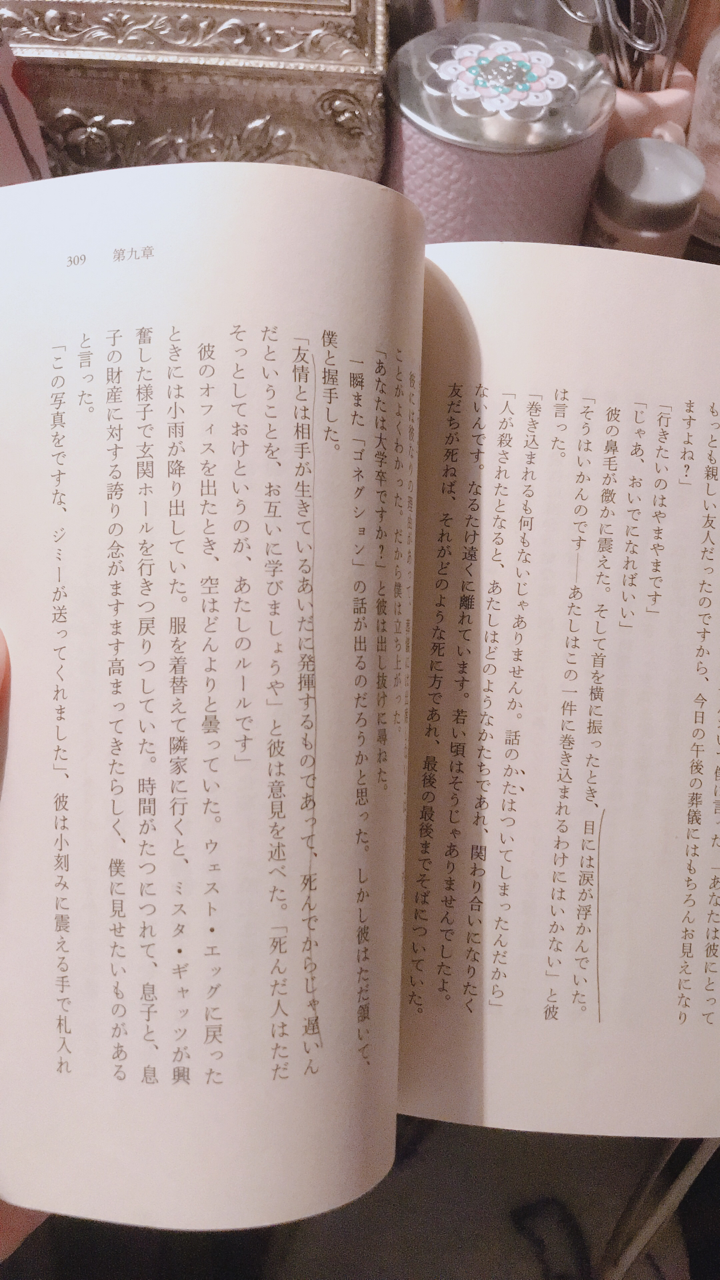 もっとも親しい友人だったのですから、今日の午後の葬儀にはもちろんお見えになり
ますよね?」
「行きたいのはやまやまです」
「じゃあ、おいでになればいい」
彼の鼻毛が微かに震えた。そして首を横に振ったとき、目には涙が浮かんでいた。
「そうはいかんのです——あたしはこの一件に巻き込まれるわけにはいかない」と彼
は言った。
「巻き込まれるも何もないじゃありませんか。話のかたはついてしまったんだから」
「人が殺されたとなると、あたしはどのようなかたちであれ、関わり合いになりたく
ないんです。なるたけ遠くに離れています。若い頃はそうじゃありませんでしたよ。
友だちが死ねば、それがどのような死に方であれ、最後の最後までそばについていた。
309 第九章
ことがよくわかった。だから僕は立ち上がった。
「あなたは大学卒ですか?」と彼は出し抜けに尋ねた。
一瞬また「ゴネグション」の話が出るのだろうかと思った。しかし彼はただ頷いて、
僕と握手した。
「友情とは相手が生きているあいだに発揮するものであって、死んでからじゃ遅いん
だということを、お互いに学びましょうや」と彼は意見を述べた。「死んだ人はただ
そっとしておけというのが、あたしのルールです」
彼のオフィスを出たとき、空はどんよりと曇っていた。ウェスト・エッグに戻った
ときには小雨が降り出していた。服を着替えて隣家に行くと、ミスタ・ギャッツが興
奮した様子で玄関ホールを行きつ戻りつしていた。時間がたつにつれて、息子と、息
子の財産に対する誇りの念がますます高まってきたらしく、僕に見せたいものがある
と言った。
「この写真をですな、ジミーが送ってくれました」、彼は小刻みに震える手で札入れ